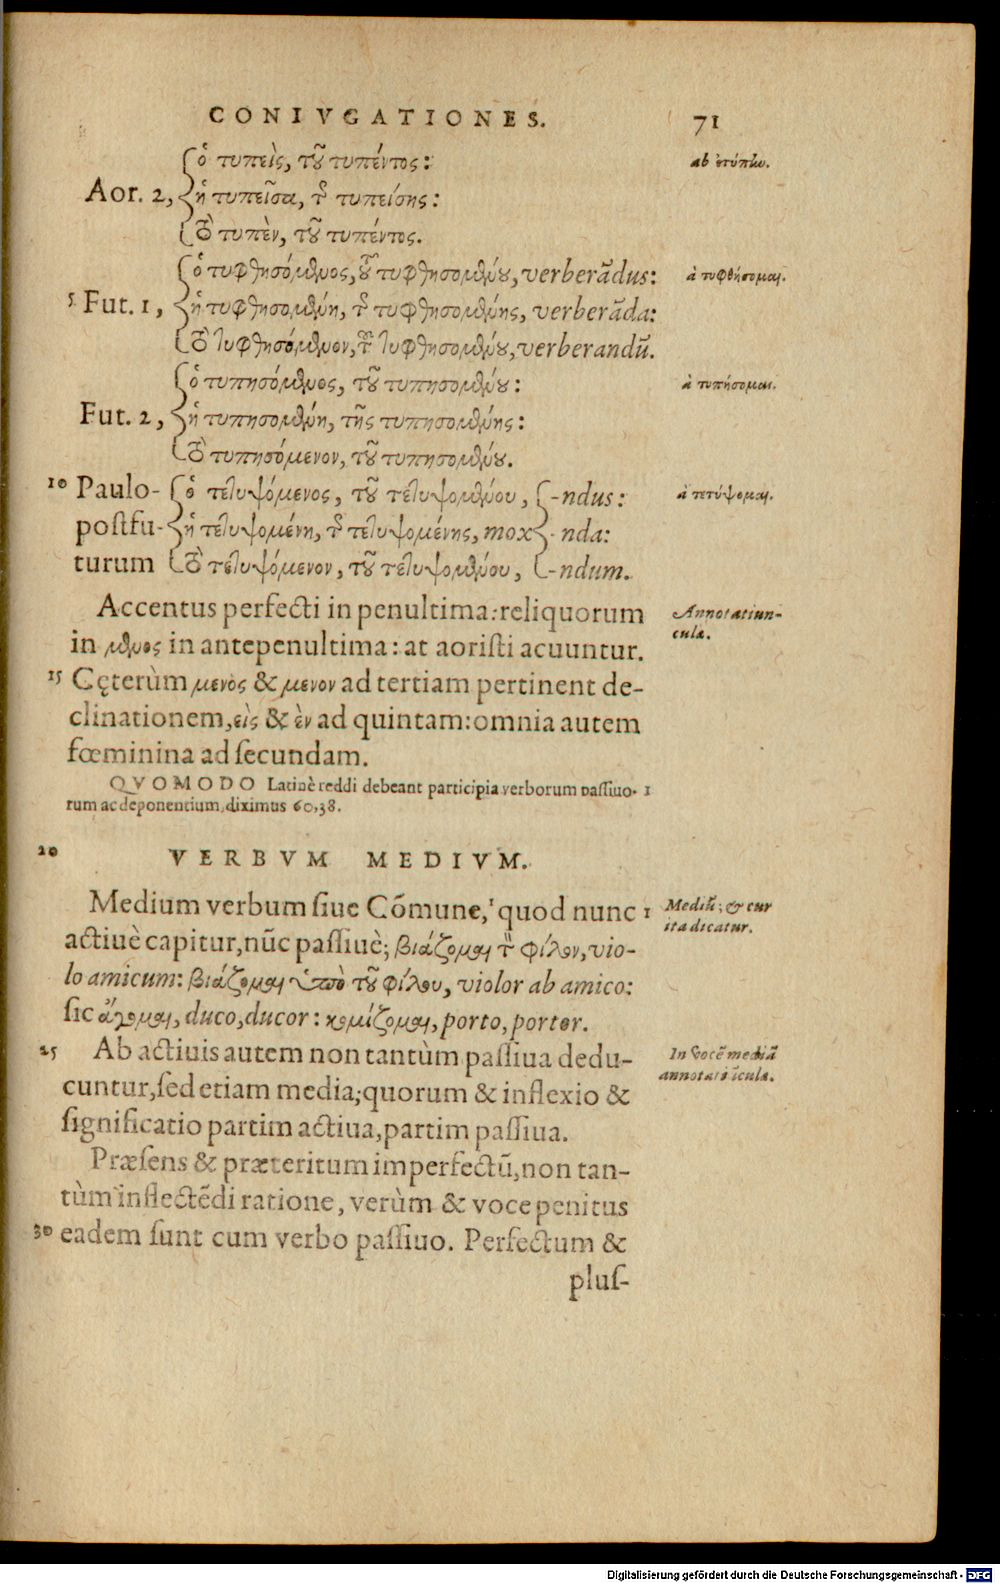 CONIVGATIONES. 71
ὁ τυπεὶς, τοῦ τυπέντος: ab ἐτύπην.
Aor. 2, ἡ τυπεῖσα, τῆς τυπείσης:
τὸ τυπὲν, τοῦ τυπέντος.
ὁ τυφθησόμενος, τοῦ τυφθησομένου, verberādus: à τυφθήσομαι.
5 Fut. 1, ἡ τυφθησομένη, τῆς τυφθησομένης, verberāda:
τὸ τυφθησόμενον, τοῦ τυφθησομένου, verberandū.
ὁ τυπησόμενος, τοῦ τυπησομένου: à τυπήσομαι.
Fut. 2, ἡ τυπησομένη, τῆς τυπησομένης:
τὸ τυπησόμενον, τοῦ τυπησομένου.
10 Paulo- ὁ τετυψόμενος, τοῦ τετυψομένου, -ndus: à τετύψομαι.
postfu- ἡ τετυψομένη, τῆς τετυψομένης, mox - nda:
turum τὸ τετυψόμενον, τοῦ τετυψομένου, -ndum.
Accentus perfecti in penultima: reliquorum Annotatiun-
in μενος in antepenultima: at aoristi acuuntur. culæ.
15 Cęterùm μενος & μενον ad tertiam pertinent de-
clinationem, εὶς & ὲν ad quintam: omnia autem
fœminina ad secundam.
QVOMODO Latinè reddi debeant participia verborum passiuo- 1
rum ac deponentium, diximus 60,38.
20 VERBVM MEDIVM.
Medium verbum siue Cōmune, quod nunc 1 Mediū; & cur
actiuè capitur, nūc passiuè; βιάζομαι τὸν φίλον, vio- ita dicatur.
lo amicum: βιάζομαι ὑπὸ τοῦ φίλου, violor ab amico:
sic ἄγομαι, duco, ducor: κομίζομαι, porto, portor.
25 Ab actiuis autem non tantùm passiua dedu- In vocē mediā
cuntur, sed etiam media; quorum & inflexio & annotatiūculæ.
significatio partim actiua, partim passiua.
Præsens & præteritum imperfectū, non tan-
tùm inflectēdi ratione, verùm & voce penitus
30 eadem sunt cum verbo passiuo. Perfectum &
plus-
Digitalisierung gefördert durch die Deutsche Forschungsgemeinschaft - DFG